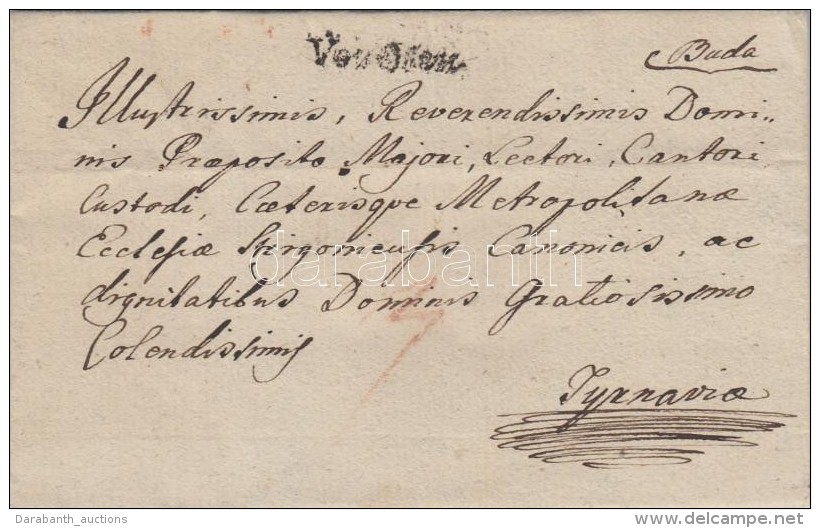 Von Ofen
Buda
Illustrissimis, Reverendissimis Domi-
nis Præposito Majori, Lectori, Cantori,
Custodi, Cæterisqve Metropolitanæ
Ecclesiæ Strigoniensis Canonicis, ac
dignitatibus Dominis Gratiosissimo
Colendissimis
Tyrnaviæ
darabanth
Darabanth_auctions
delcampe.net